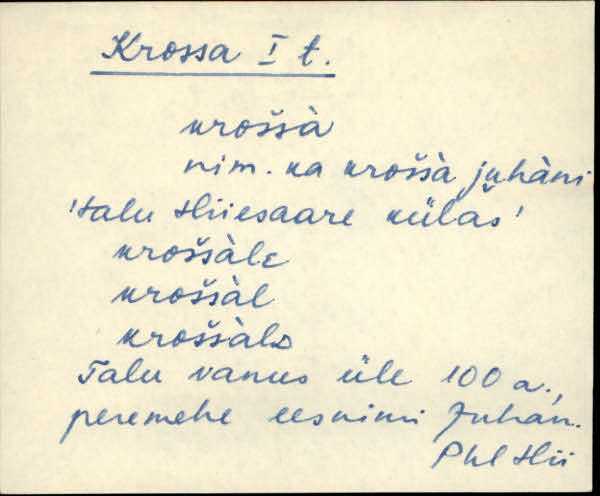 Krossa I t.
krošsà
nim. ka krošsà juhàni
'talu Hiiesaare külas'
krošsàlε
krošsàl
krošsàld
Talu vanus üle 100 a.,
peremehe eesnimi Juhan.
Phl Hii